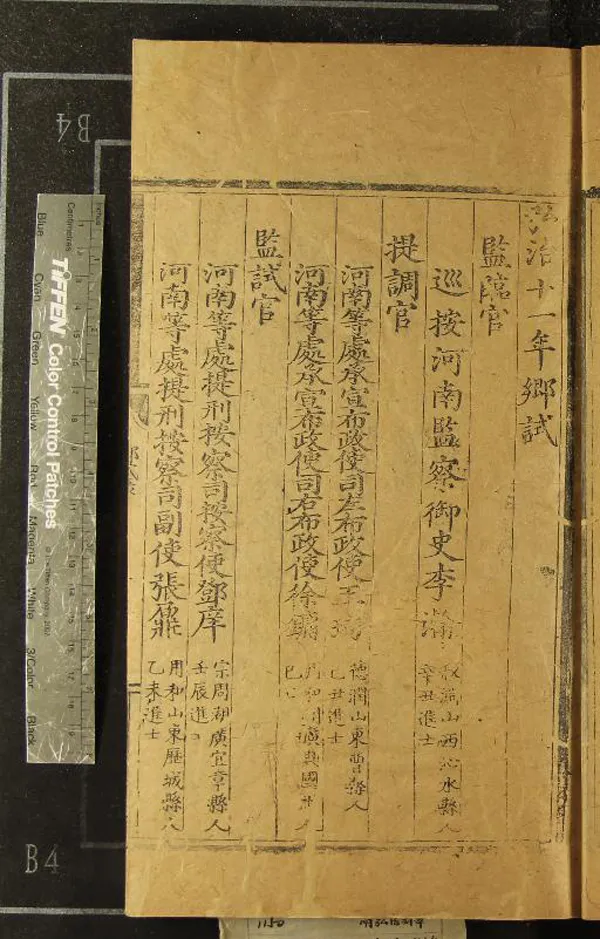 弘治十一年鄉試
監臨官
巡按河南監察御史李瀚
叔淵山西沁水縣人
辛丑進士
提調官
河南等處承宣布政使司左布政使王
德潤山東曹縣人
己丑進士
河南等處承宣布政使司右布政使徐
用和湖廣興國州人
監試官
河南等處提刑按察司按察使鄧庠
宗周湖廣宜章縣人
壬辰進
河南等處提刑按察司副使張鼐
用和山東歷城縣人
乙未進士
B4
B4
TIFFEN Color Control Patches
Centimetres
Blue
Cyan
Green
Yellow
Red
Magenta
White
3/Color
Black